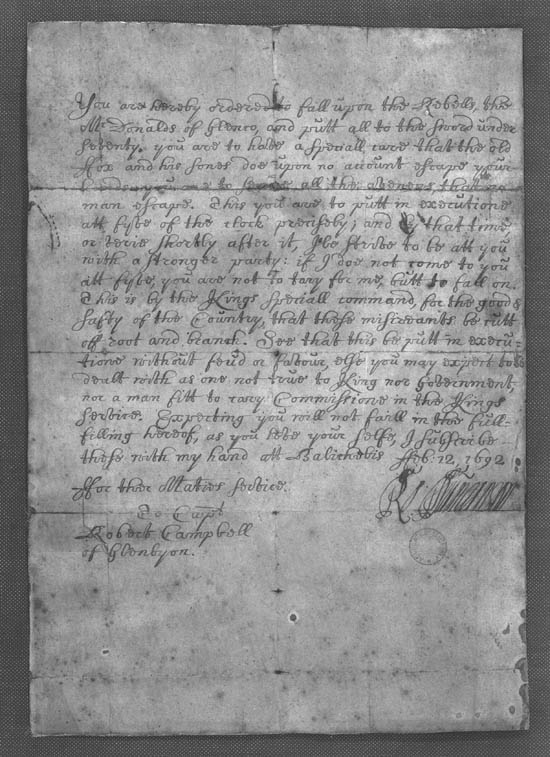 You are hereby ordered to fall upon the Rebells, the
McDonalds of Glenco, and putt all to the sword under
seventy. you are to have a speciall care that the old
ffox and his sones doe upon no account escape your
hands, you are to secure all the avenues, that no
man escape. This you are to putt in executione
att fyve of the clock precisely; and by that time
or verie shortly after it, I'le strive to be att you
with a stronger party: if I doe not come to you
att fyve, you are not to tary for me, butt to fall on.
This is by the Kings speciall command, for the good &
safty of the Country, that these miscreants be cutt
off root and branch. See that this be putt in execu-
tione without feud or favour, else you may expect to be
dealt with as one not true to King nor Government,
nor a man fitt to cary Commissione in the Kings
service. Expecting you will not faill in the full-
filling hereof, as you love your selfe, I subscribe
these with my hand att Balicholis ffeb: 12, 1692
ffor ther Maties service. R. Duncanson
To Capt
Robert Campbell
of Glenlyon.